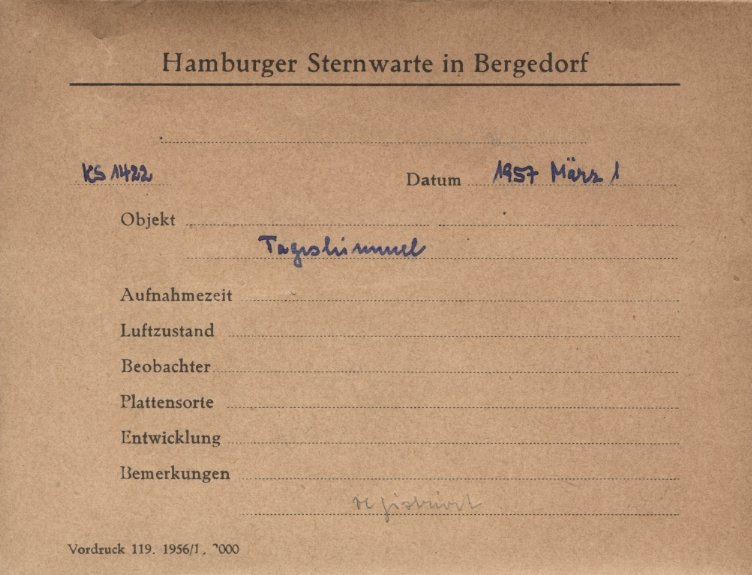 Hamburger Sternwarte in Bergedorf
KS 1422 Datum 1957 März 1
Objekt
Tageshimmel
Aufnahmezeit
Luftzustand
Beobachter
Plattensorte
Entwicklung
Bemerkungen
registriert
Vordruck 119. 1956/1. 2000